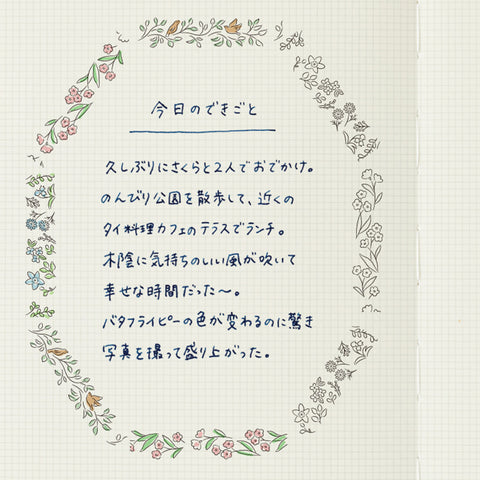 今日のできごと
久しぶりにさくらと2人でおでかけ。
のんびり公園を散歩して、近くの
タイ料理カフェのテラスでランチ。
木陰に気持ちのいい風が吹いて
幸せな時間だった〜。
バタフライピーの色が変わるのに驚き
写真を撮って盛り上がった。